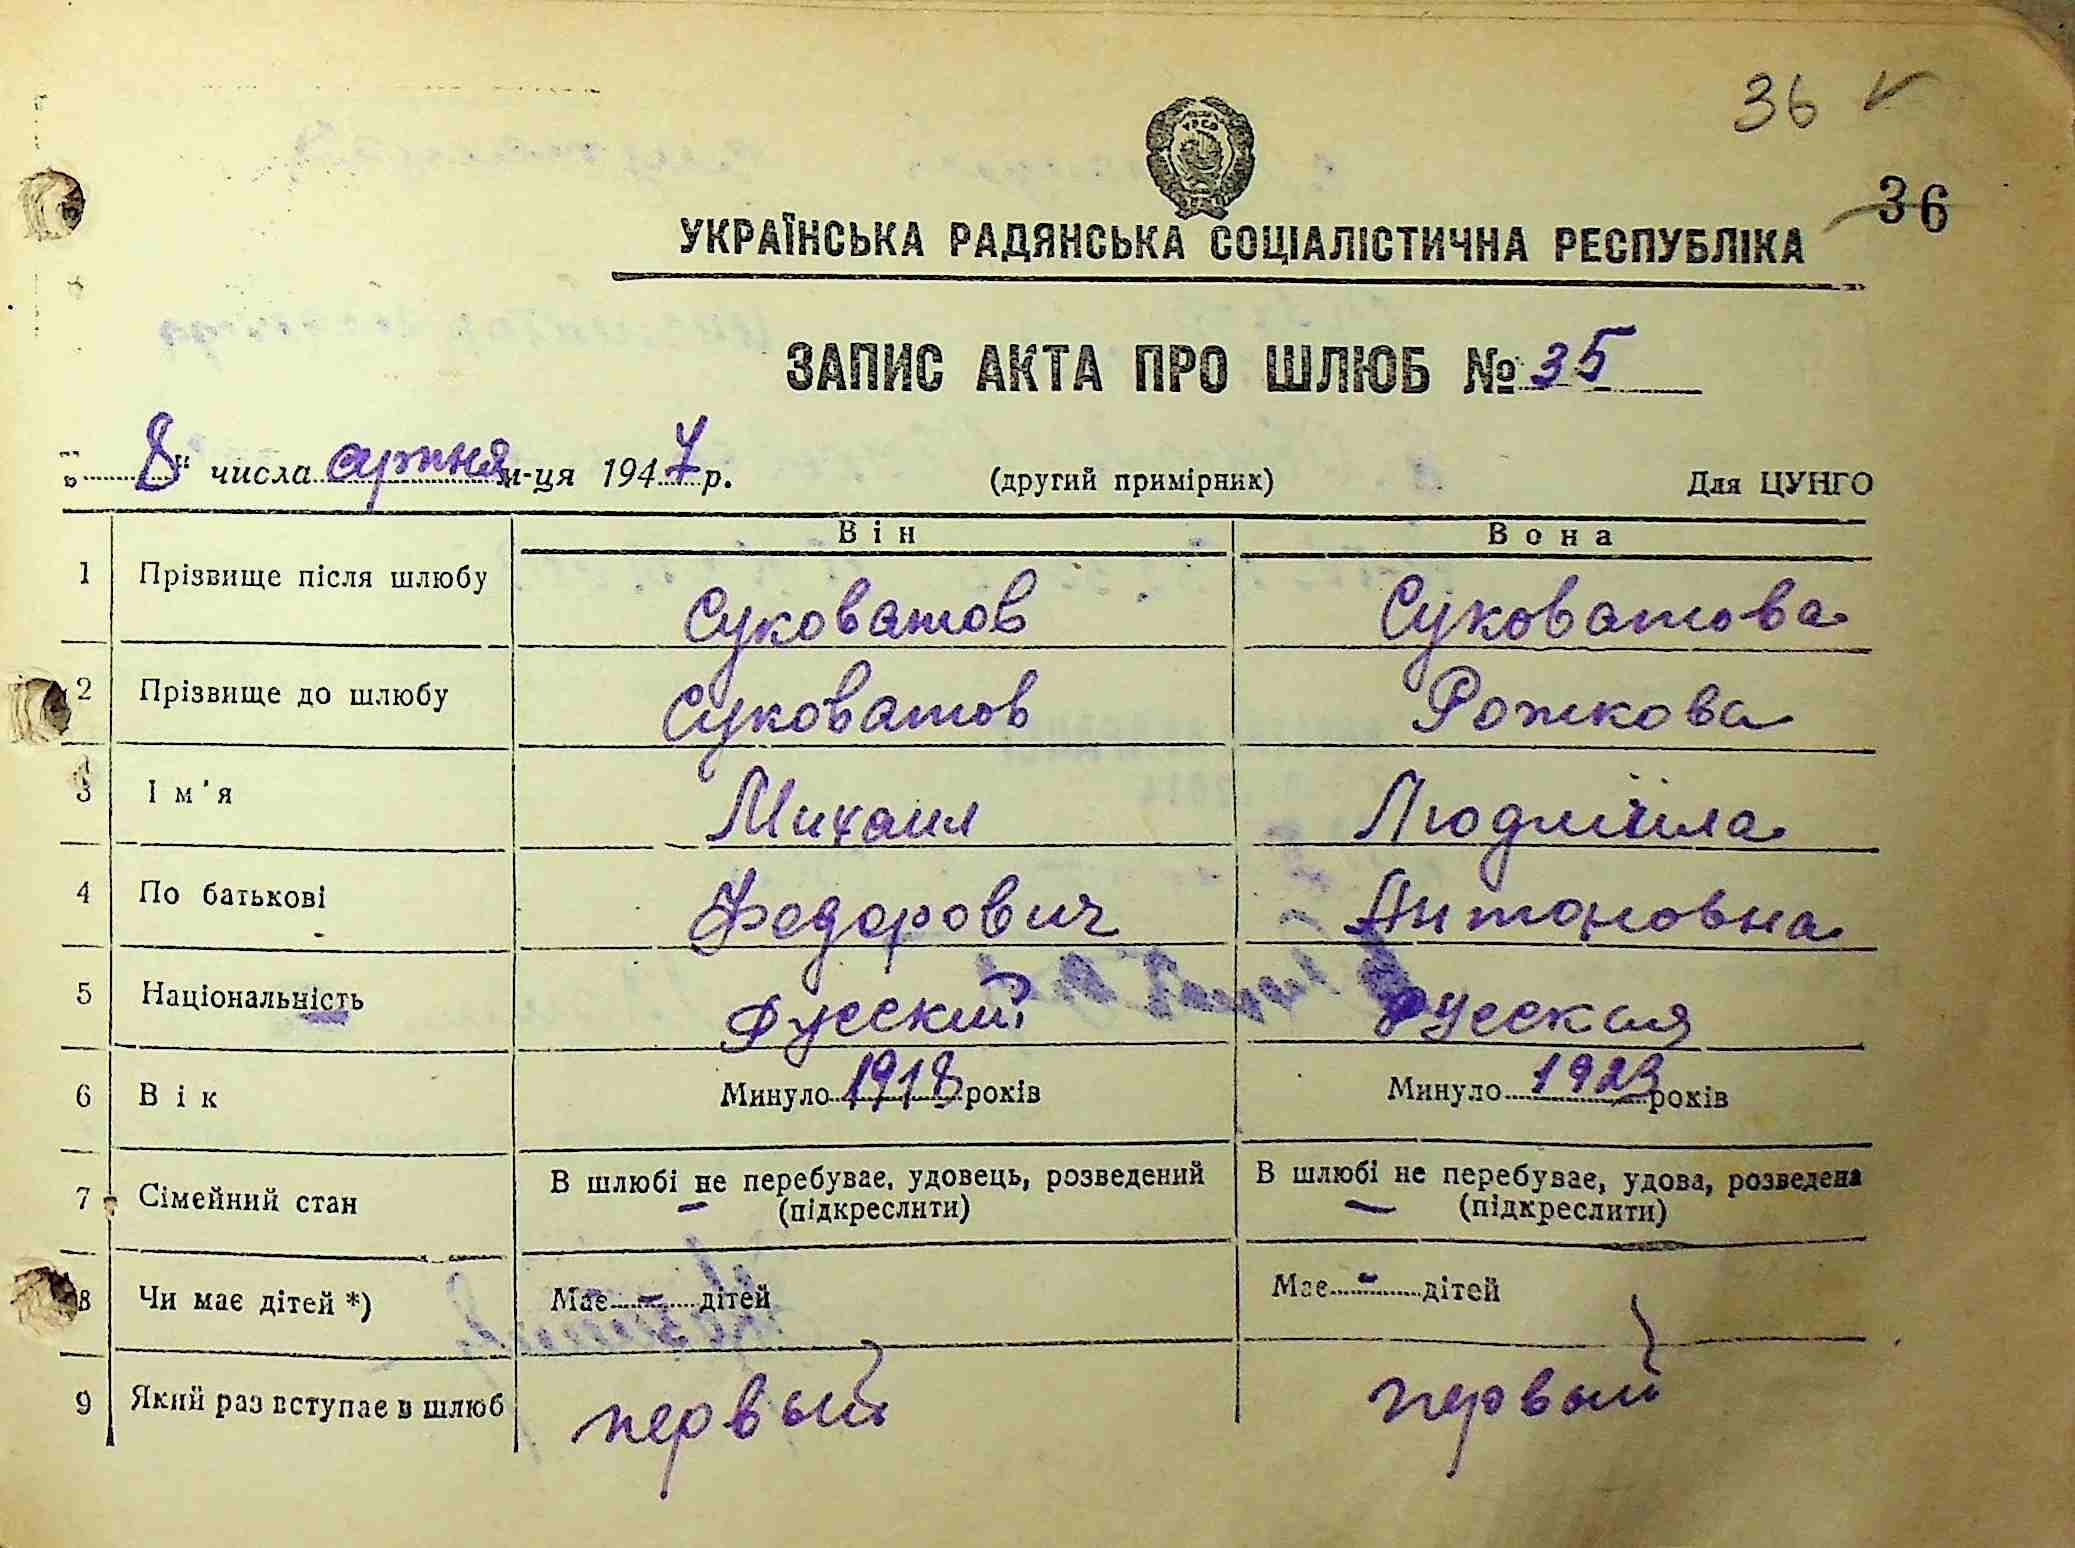 36 ✓
36
УКРАЇНСЬКА РАДЯНСЬКА СОЦІАЛІСТИЧНА РЕСПУБЛІКА
ЗАПИС АКТА ПРО ШЛЮБ № 35
„8“ числа серпня м-ця 1947 р. (другий примірник) Для ЦУНГО
Він Вона
1 Прізвище після шлюбу Суковатов Суковатова
2 Прізвище до шлюбу Суковатов Рожкова
3 Ім'я Михаил Людмила
4 По батькові Федорович Антоновна
5 Національність Русский Русская
6 Вік Минуло 1918 років Минуло 1923 років
7 Сімейний стан В шлюбі не перебуває, удовець, розведений В шлюбі не перебуває, удова, розведена
(підкреслити) (підкреслити)
8 Чи має дітей *) Має - дітей Має - дітей
9 Який раз вступає в шлюб первый первый